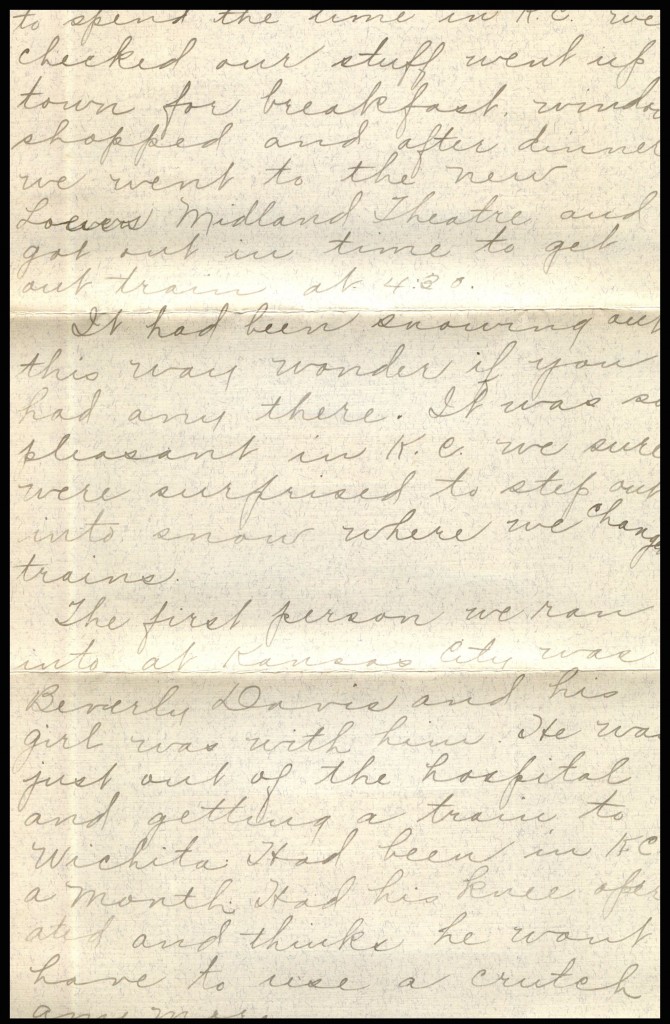 to spend the time in K.C. we
checked our stuff went up
town for breakfast. window
shopped and after dinner
we went to the new
Loewes Midland Theatre and
got out in time to get
out train at 4:30.
It had been snowing out
this way wonder if you
had any there. It was so
pleasant in K.C. we sure
were surprised to step out
into snow where we change
trains.
The first person we ran
into at Kansas City was
Beverly Davis and his
girl was with him. He was
just out of the hospital
and getting a train to
Wichita. Had been in KC
a month. Had his knee oper
ated and thinks he wont
have to use a crutch
any more